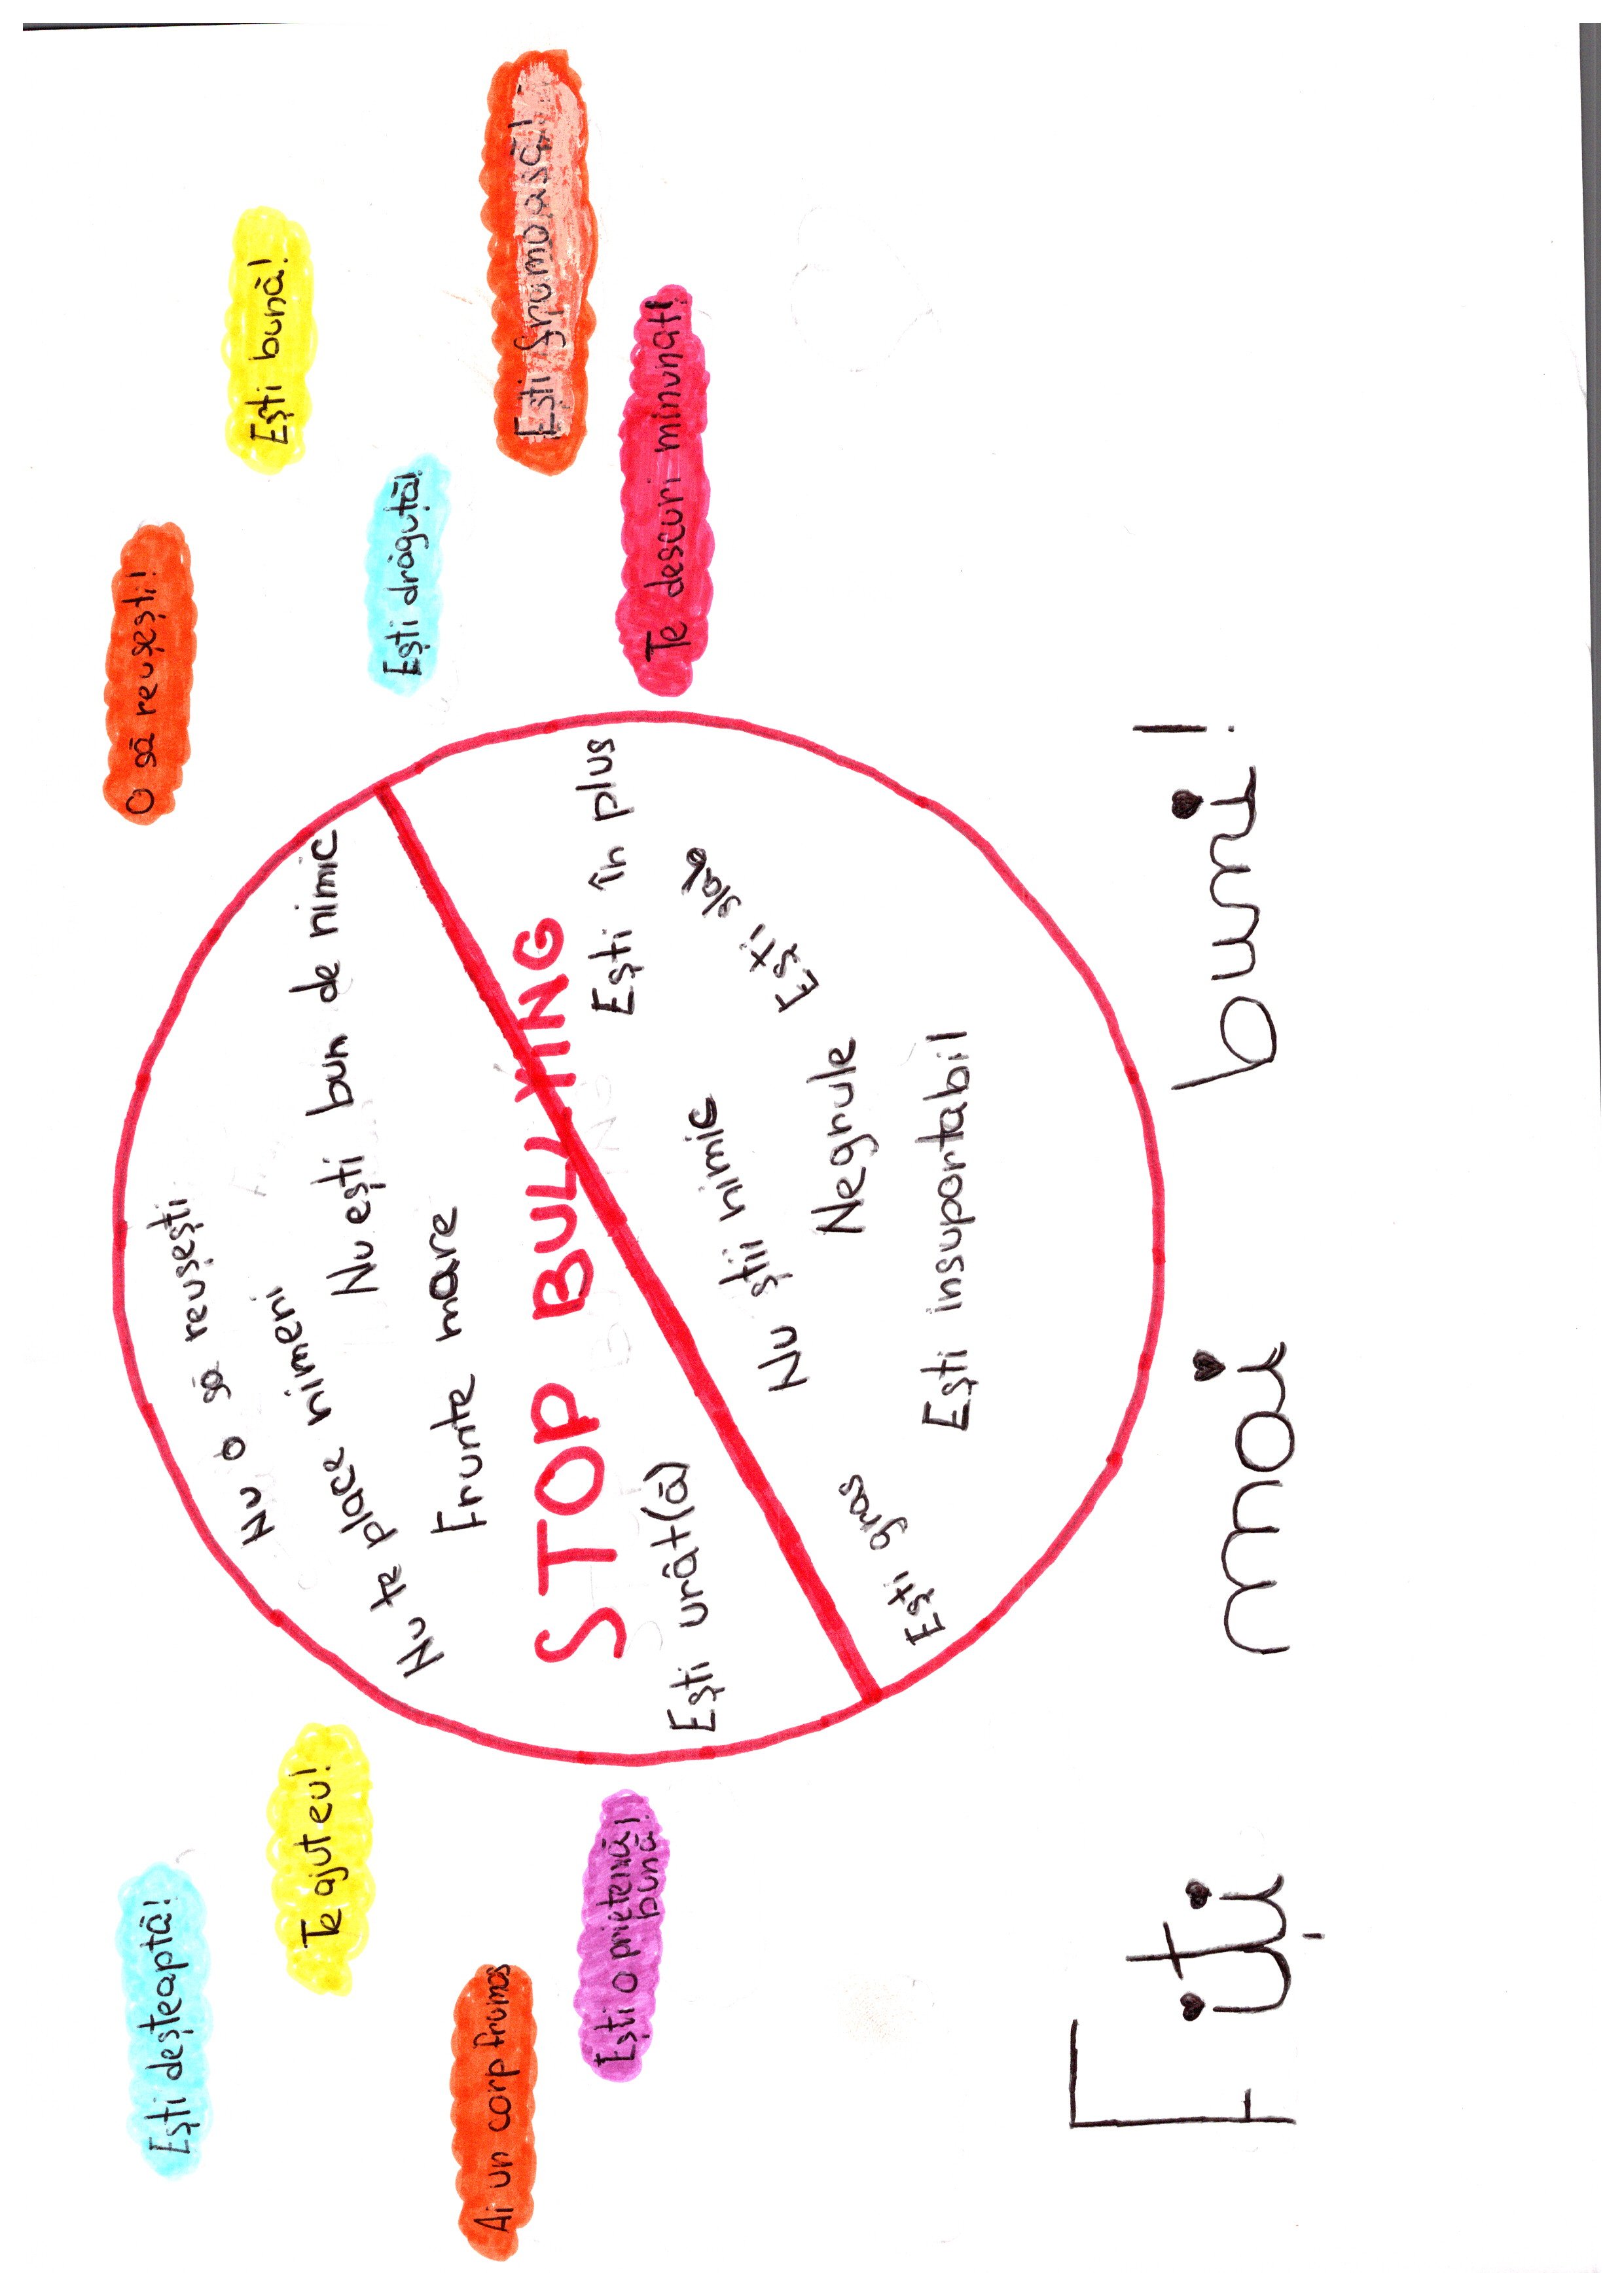 Ești deșteaptă!
Te ajut eu!
Ai un corp frumos
Ești o prietenă
bună!
O să reușești!
Ești bună!
Ești drăguță!
Ești frumoasă!
Te descuri minunat!
Nu o să reușești
Nu te place nimeni
Nu ești bun de nimic
Frunte mare
STOP BULLYING
Ești urât(ă)
Ești în plus
Ești slab
Nu știi nimic
Negrule
Ești gras
Ești insuportabil
Fiți mai buni!